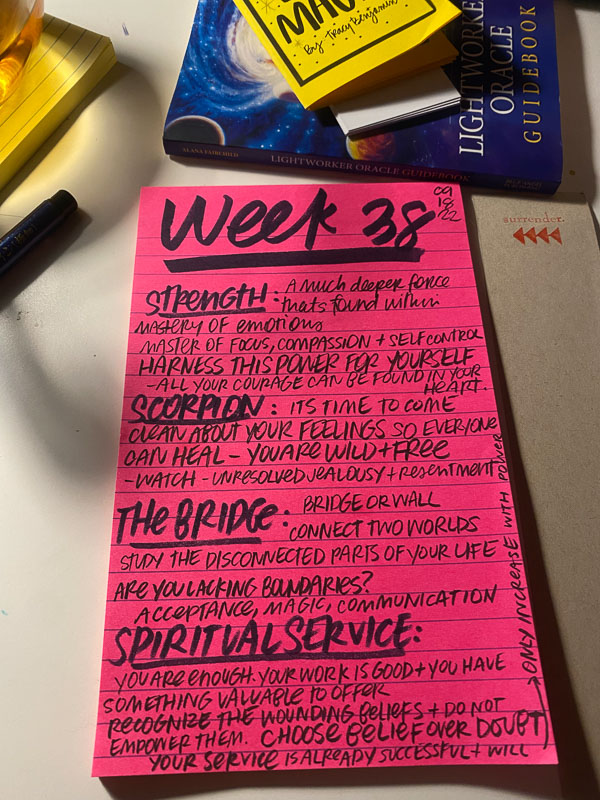 MAG
By Tracy Benjamin
LIGHTWORKER
ORACLE
GUIDEBOOK
ALANA FAIRCHILD
LIGHTWORKER ORACLE GUIDEBOOK
surrender.
Week 38
09
18
22
STRENGTH: A much deeper force
thats found within
MASTERY OF EMOTIONS
MASTER OF FOCUS, COMPASSION + SELF CONTROL
HARNESS THIS POWER FOR YOURSELF
- ALL YOUR COURAGE CAN BE FOUND IN YOUR
HEART.
SCORPION: ITS TIME TO COME
CLEAN ABOUT YOUR FEELINGS SO EVERYONE
CAN HEAL - YOU ARE WILD + FREE
- WATCH - UNRESOLVED JEALOUSY + RESENTMENT
THE BRIDGE: BRIDGE OR WALL
CONNECT TWO WORLDS
STUDY THE DISCONNECTED PARTS OF YOUR LIFE
ARE YOU LACKING BOUNDARIES?
ACCEPTANCE, MAGIC, COMMUNICATION
SPIRITUAL SERVICE:
YOU ARE ENOUGH. YOUR WORK IS GOOD + YOU HAVE
SOMETHING VALUABLE TO OFFER
RECOGNIZE THE WOUNDING BELIEFS + DO NOT
EMPOWER THEM. CHOOSE BELIEF OVER DOUBT
YOUR SERVICE IS ALREADY SUCCESSFUL + WILL
→ ONLY INCREASE WITH POWER